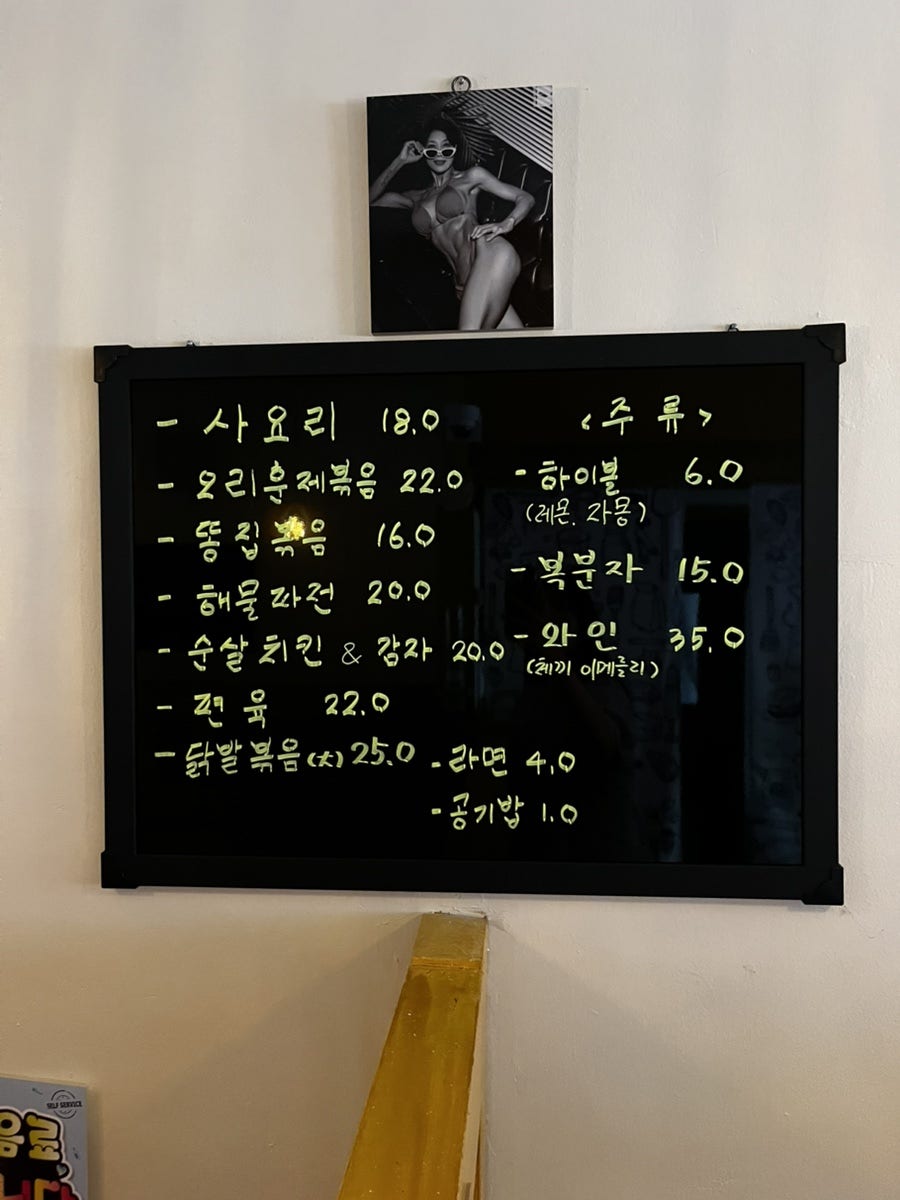 - 사요리 18.0
- 오리훈제볶음 22.0
- 똥집볶음 16.0
- 해물파전 20.0
- 순살치킨 & 감자 20.0
- 편육 22.0
- 닭발볶음(大) 25.0
- 라면 4.0
- 공기밥 1.0
<주류>
- 하이볼 6.0
(레몬, 자몽)
- 복분자 15.0
- 와인 35.0
(체끼 이메를리)
SELF SERVICE